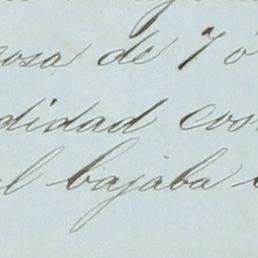 cosa de 7 ó
didad cos
el bajaba